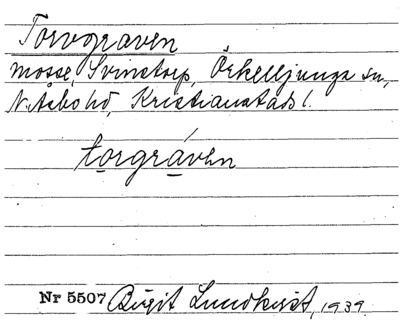 Torvgraven
mosse, Svinstorp, Örkelljunga sn,
N. Åsbo hd, Kristianstads l.
torgráven
Nr 5507 Birgit Lundkvist, 1939